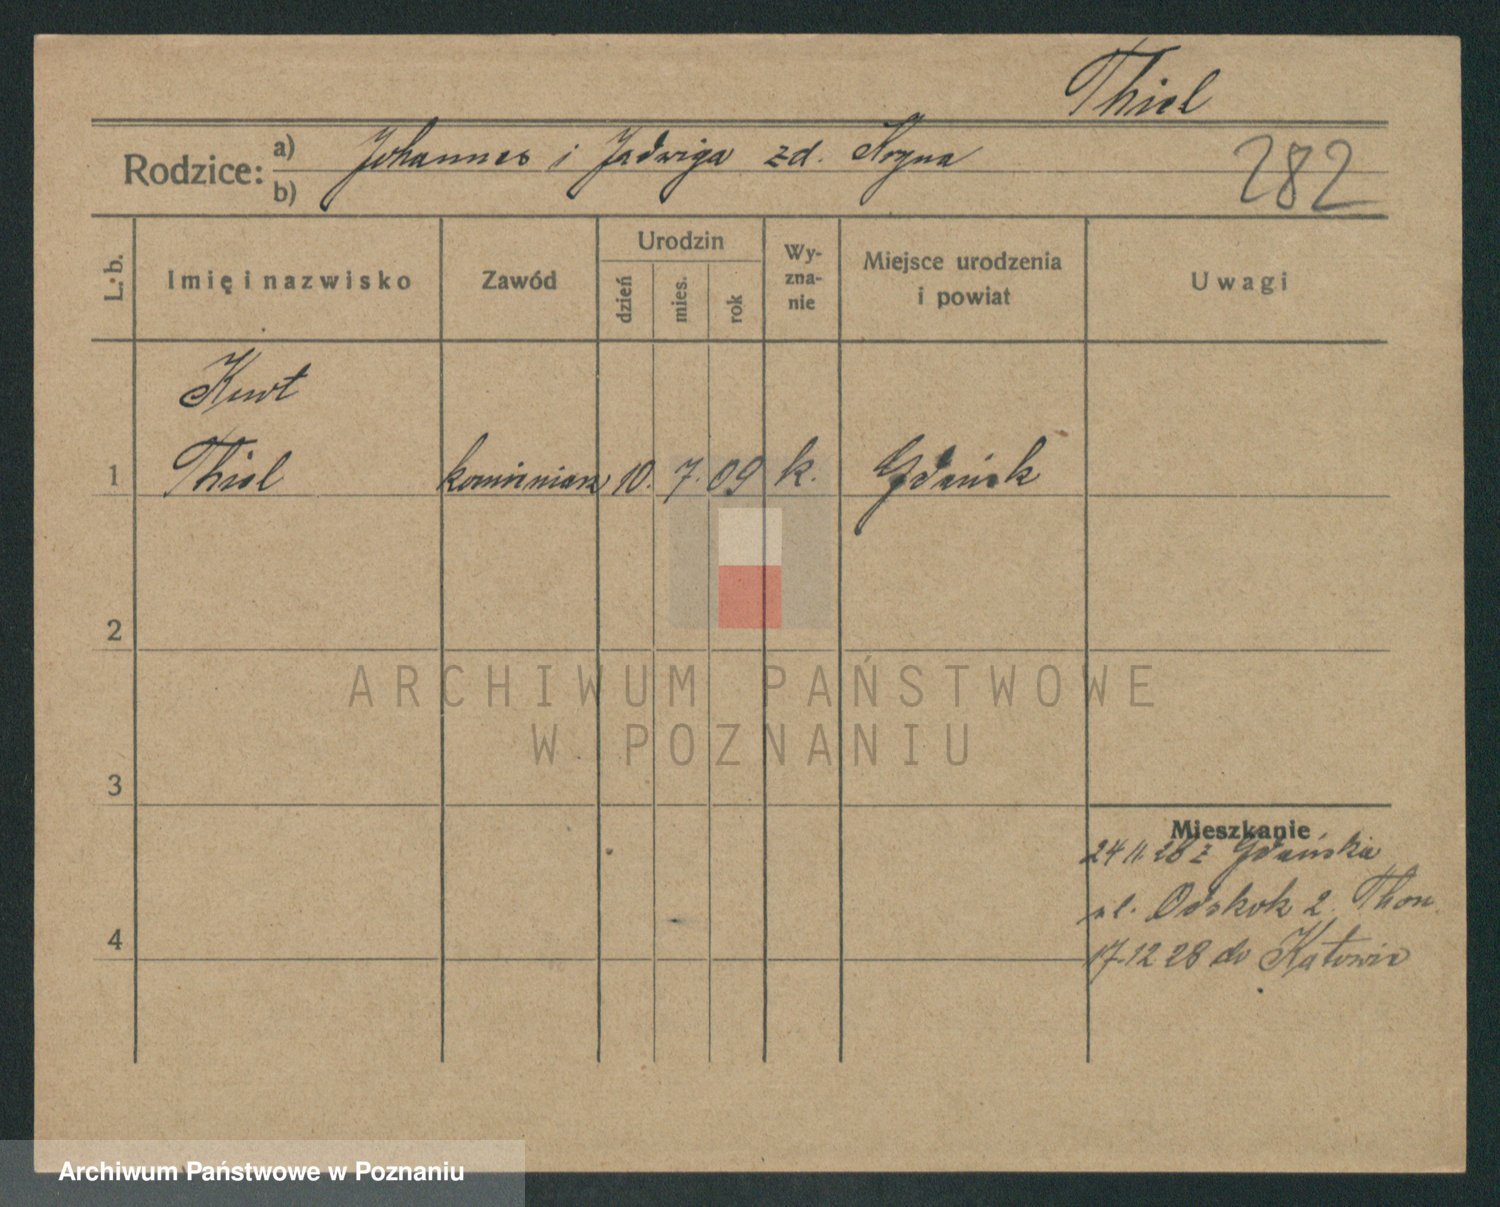 Thiel
Rodzice: a) Johannes i Jadwiga zd.
b)
282
L. b.
Imię i nazwisko
Zawód
Urodzin
dzień
mies.
rok
Wy-
zna-
nie
Miejsce urodzenia
i powiat
Uwagi
Kurt
1 Thiel 10. 7. 09 k. Gdańsk
2
3
4
Mieszkanie
24 11. 28 z Gdańska
ul. Odskok 2. Thom.
17.12 28 do Katowic
ARCHIWUM PAŃSTWOWE
W POZNANIU
Archiwum Państwowe w Poznaniu